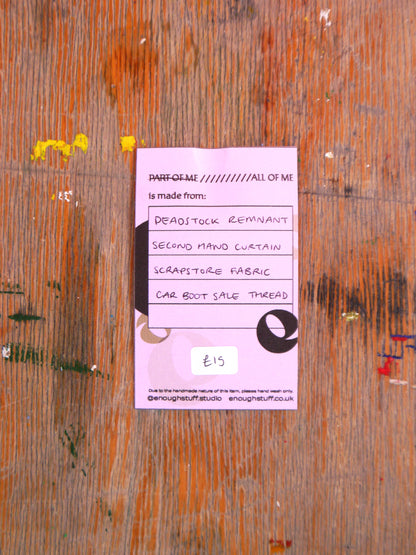 PART OF ME //////////ALL OF ME
is made from:
DEADSTOCK REMNANT
SECOND HAND CURTAIN
SCRAPSTORE FABRIC
CAR BOOT SALE THREAD
£15
Due to the handmade nature of this item, please hand wash only.
@enoughstuff.studio enoughstuff.co.uk